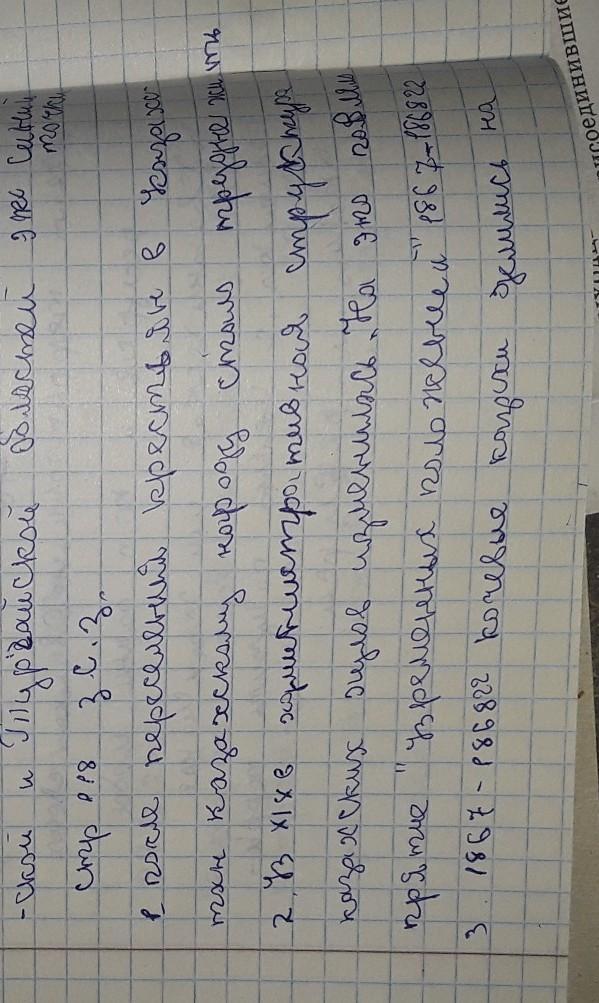 -ской и Тургайской областей это синий
точки
стр 118 З.С.З.
1 после переселений крестьян в Казахс
тан казахскому народу стало трудне жить
2. В XIX в административная структура
казахских аулов изменилась. На это повли
прятие "Временных положений" 1867-1868гг
3. 1867-1868гг кочевые казахи делились на
исоединившие